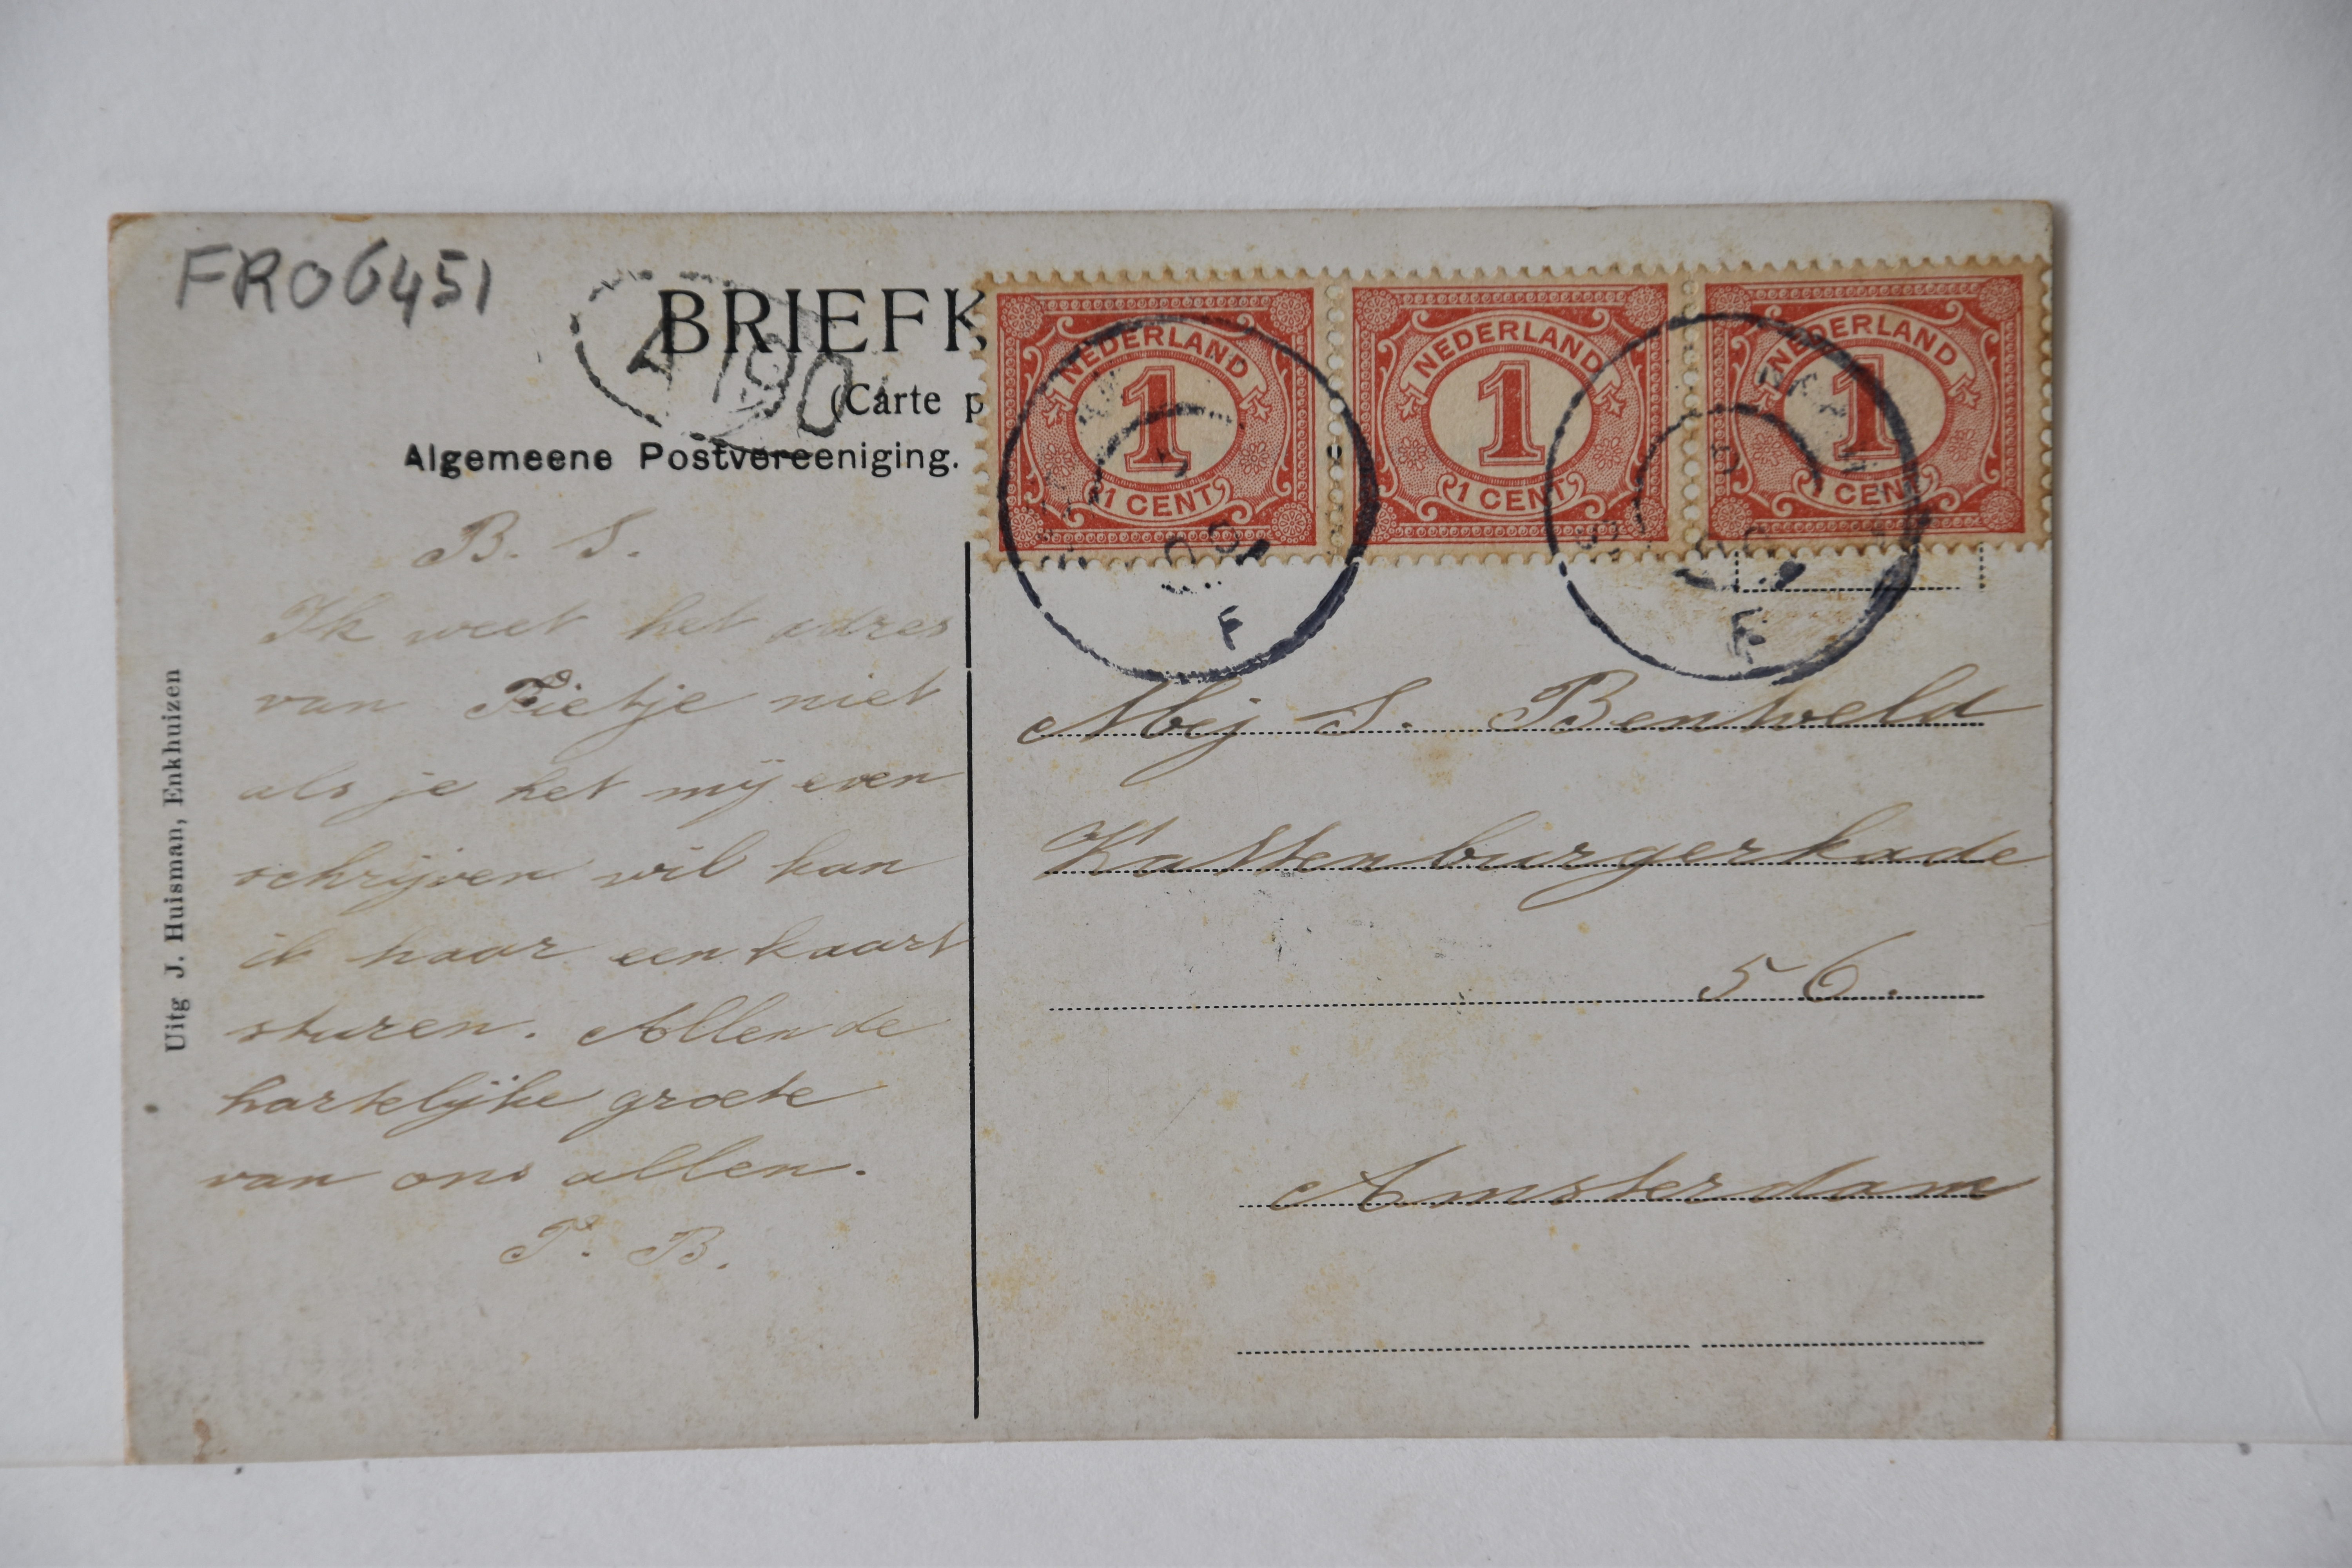 FR06451
BRIEFK
(Carte p
Algemeene Postvereeniging.
NEDERLAND
1
1 CENT
NEDERLAND
1
1 CENT
NEDERLAND
1
1 CENT
F
F
B. S.
Ik weet het adres
van Fietje niet
als je het mij even
schrijven wil kan
ik haar een kaart
sturen. Allen de
hartelijke groete
van ons allen.
P. B.
Uitg J. Huisman, Enkhuizen
Mej S. Bentveld
Kattenburgerkade
56.
Amsterdam